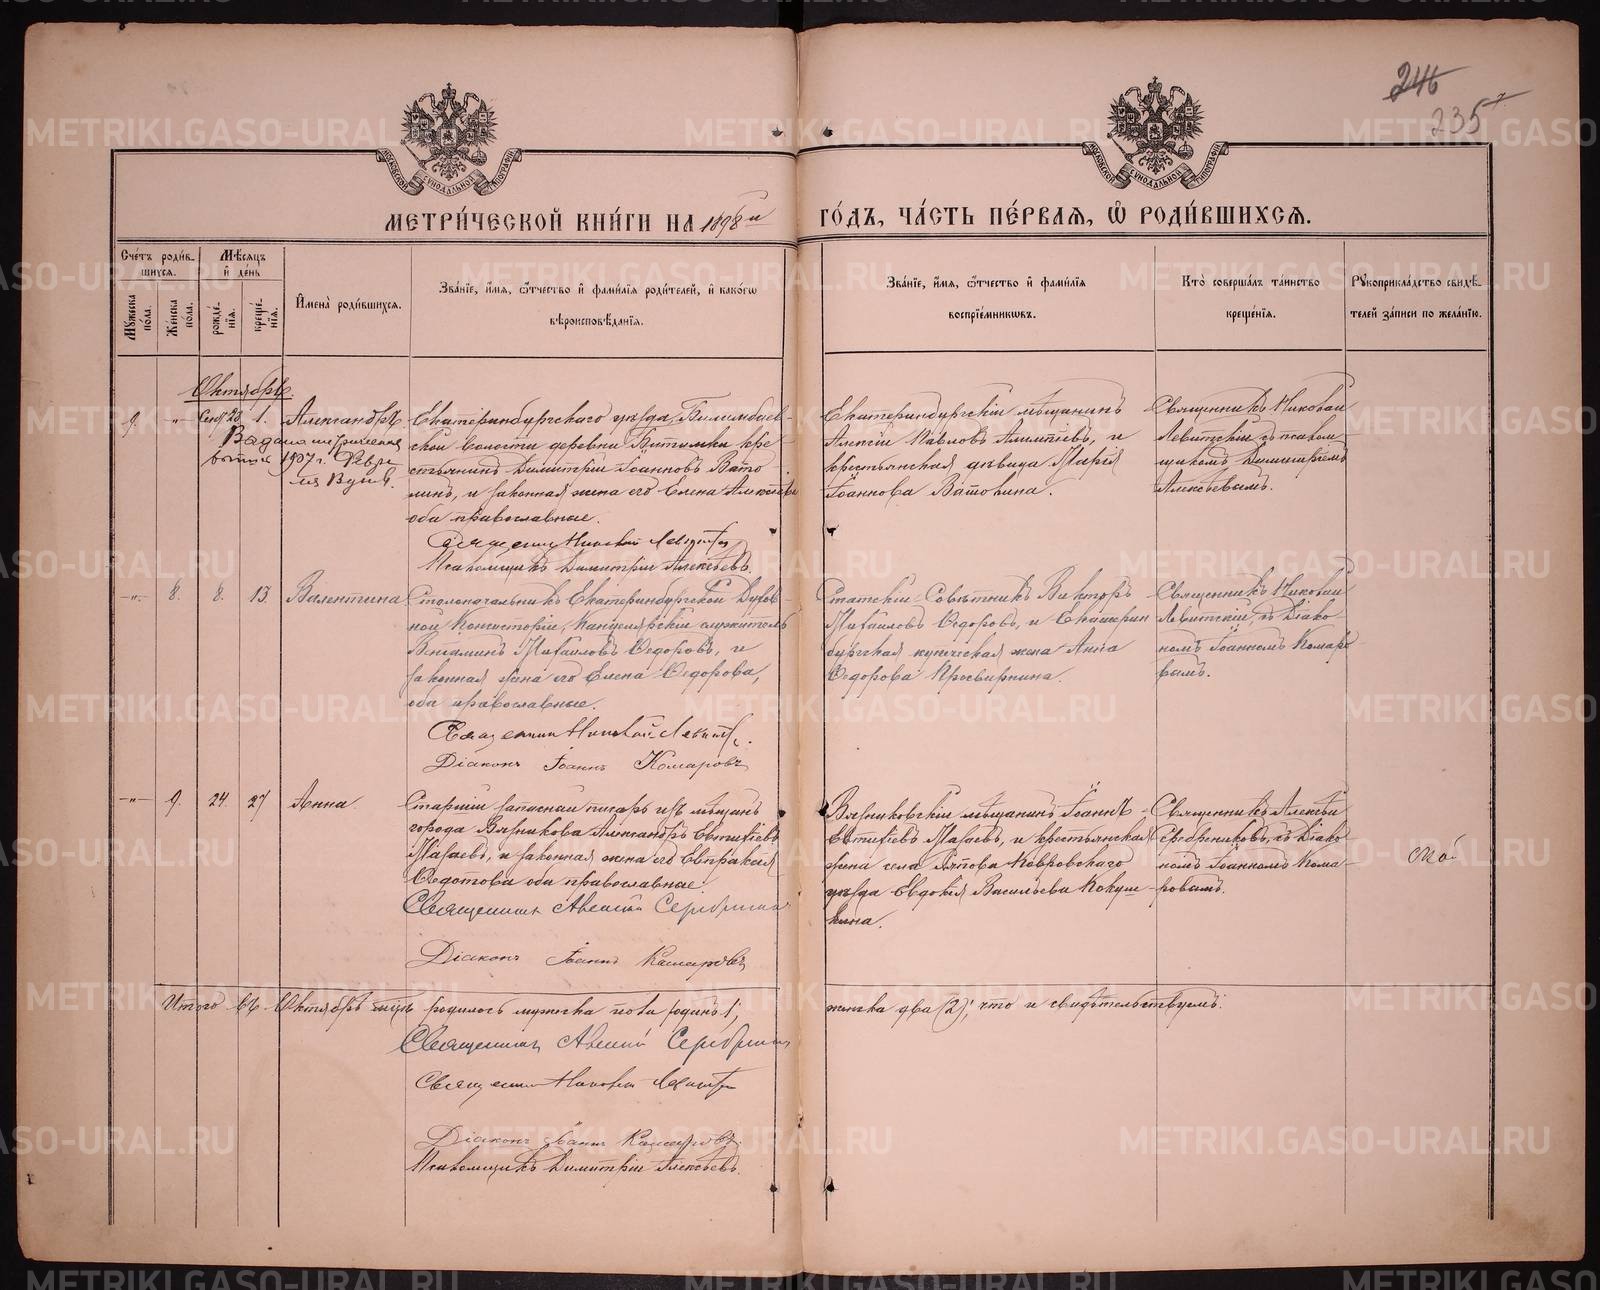 246
235
МОСКОВСКОЙ СѴНОДАЛЬНОЙ ТИПОГРАФІИ
МОСКОВСКОЙ СѴНОДАЛЬНОЙ ТИПОГРАФІИ
МЕТРИ́ЧЕСКОЙ КНИ́ГИ НА 1898й ГО́ДЪ, ЧА́СТЬ ПЕ́РВАѦ, Ѡ҆ РОДИ́ВШИХСѦ.
Сче́тъ роди́в-
шихся.
Мѣ́сяцъ
и҆ де́нь
Мꙋ́жеска по́ла.
Же́нска по́ла.
рожде́-
нїѧ.
креще́-
нїѧ.
И҆мена̀ роди́вшихсѧ.
Зва́нїе, и҆́мѧ, ѻ҆́тчество и҆ фамилїѧ роди́телей, и҆ како́гѡ
вѣроисповѣ́данїѧ.
Зва́нїе, и҆́мѧ, ѻ҆́тчество и҆ фами́лїѧ
воспрїе́мникѡвъ.
Кто̀ соверша́лъ та́инство
креще́нїѧ.
Рꙋкоприкла́дство свидѣ́-
телей за́писи по жела́нїю.
Октябрь.
9. " Сент. 23. 1. Александръ
Выдана метрическая
выпись 1907 г. Февра
ля
Екатеринбургскаго уѣзда Билимбаев-
ской волости деревни Битимки кре-
стьянинъ Димитрій Іоанновъ Вато-
линъ, и законная жена его Елена
оба православные.
Священникъ Николай Левитскій
Псаломщикъ Димитрій Алексѣевъ.
Екатеринбургскій мѣщанинъ
Алексій Павловъ и
крестьянская дѣвица Марія
Іоаннова Ватолина.
Священникъ Николай
Левитскій съ псалом-
щикомъ Димитріемъ
Алексѣевымъ.
" 8. 8. 13. Валентина
Столоначальникъ Екатеринбургской Духов-
ной Консисторіи, Канцелярскій служитель
Веніаминъ Михаиловъ Ѳедоровъ, и
законная жена его Елена Ѳедорова,
оба православные.
Священникъ Николай Левитс.
Діаконъ Іоаннъ Комаровъ
Статскій Совѣтникъ Викторъ
Михаиловъ Ѳедоровъ, и Екатерин
бургская купеческая жена Анна
Ѳедорова Просвирнина.
Священникъ Николай
Левитскій, съ Діако-
номъ Іоанномъ Комаро-
вымъ.
" 9. 24. 27 Анна.
Старшій запасный писарь изъ мѣщанъ
города Вязникова Александръ Евтихіевъ
и законная жена его Евпраксія
Ѳедотова оба православные.
Священникъ Алексій Серебрянник
Діаконъ Іоаннъ Комаровъ
Вязниковскій мѣщанинъ Іоаннъ
Евтихіевъ и крестьянская
жена села Ковровскаго
уѣзда Евдокія Васильева Кокуш-
кина.
Священникъ Алексій
Серебренниковъ, съ Діако-
номъ Іоанномъ Кома-
ровымъ.
Итого въ Октябрѣ мцѣ родилось мужска пола (одинъ) 1,
женска два (2); что и свидѣтельствуемъ:
Священникъ Алексій Серебрянн
Священникъ Николай Левитскій
Діаконъ Іоаннъ Комаровъ.
Псаломщикъ Димитрій Алексѣевъ.
METRIKI.GASO-URAL.RU